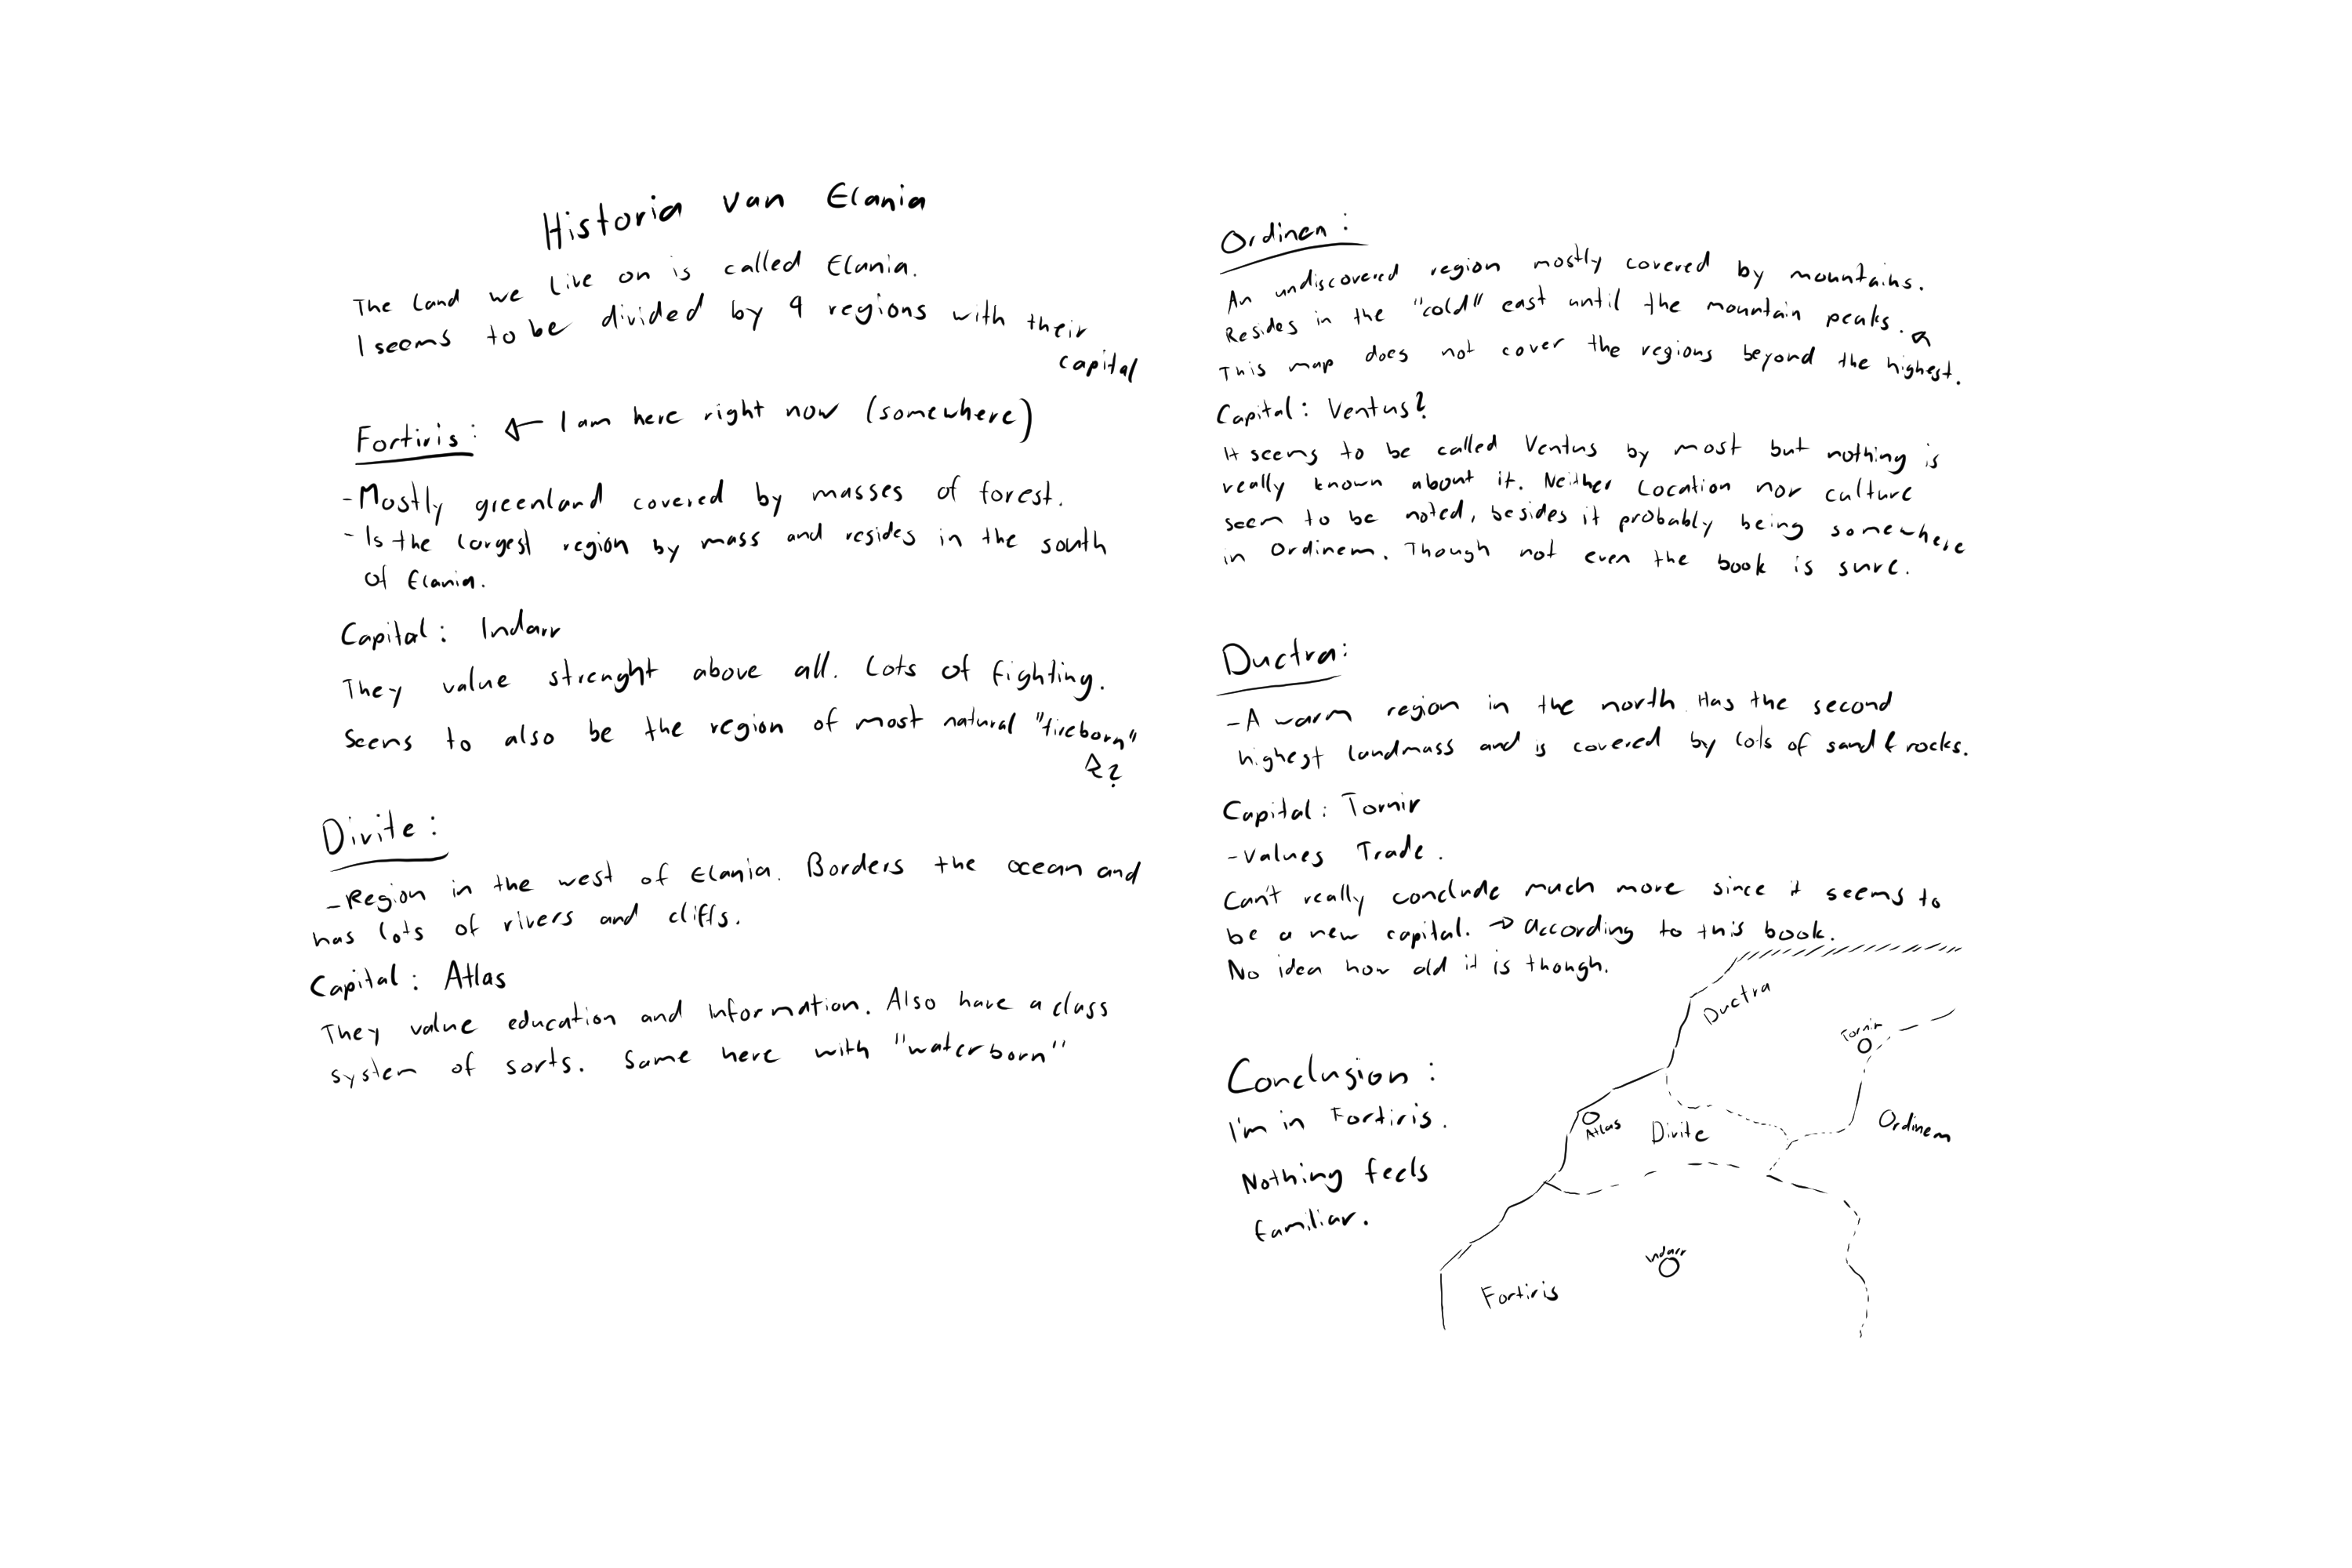 Historia van Elania
The land we live on is called Elania.
I seems to be divided by 4 regions with their
capital
Fortiris: ← I am here right now (somewhere)
-Mostly greenland covered by masses of forest.
-Is the largest region by mass and resides in the south
of Elania.
Capital: Indarr
They value strenght above all. Lots of fighting.
Seems to also be the region of most natural "fireborn"
↑?
Divite:
-Region in the west of Elania. Borders the ocean and
has lots of rivers and cliffs.
Capital: Atlas
They value education and information. Also have a class
system of sorts. Same here with "waterborn"
Ordinem:
An undiscovered region mostly covered by mountains.
Resides in the "cold" east until the mountain peaks.
This map does not cover the regions beyond the highest.
Capital: Ventus?
It seems to be called Ventus by most but nothing is
really known about it. Neither location nor culture
seem to be noted, besides it probably being somewhere
in Ordinem. Though not even the book is sure.
Ductra:
-A warm region in the north. Has the second
highest landmass and is covered by lots of sand & rocks.
Capital: Tornir
-Values Trade.
Can't really conclude much more since it seems to
be a new capital. → According to this book.
No idea how old it is though.
Conclusion:
I'm in Fortiris.
Nothing feels
familiar.
Ductra
Tornir
Atlas
Divite
Ordinem
Indarr
Fortiris